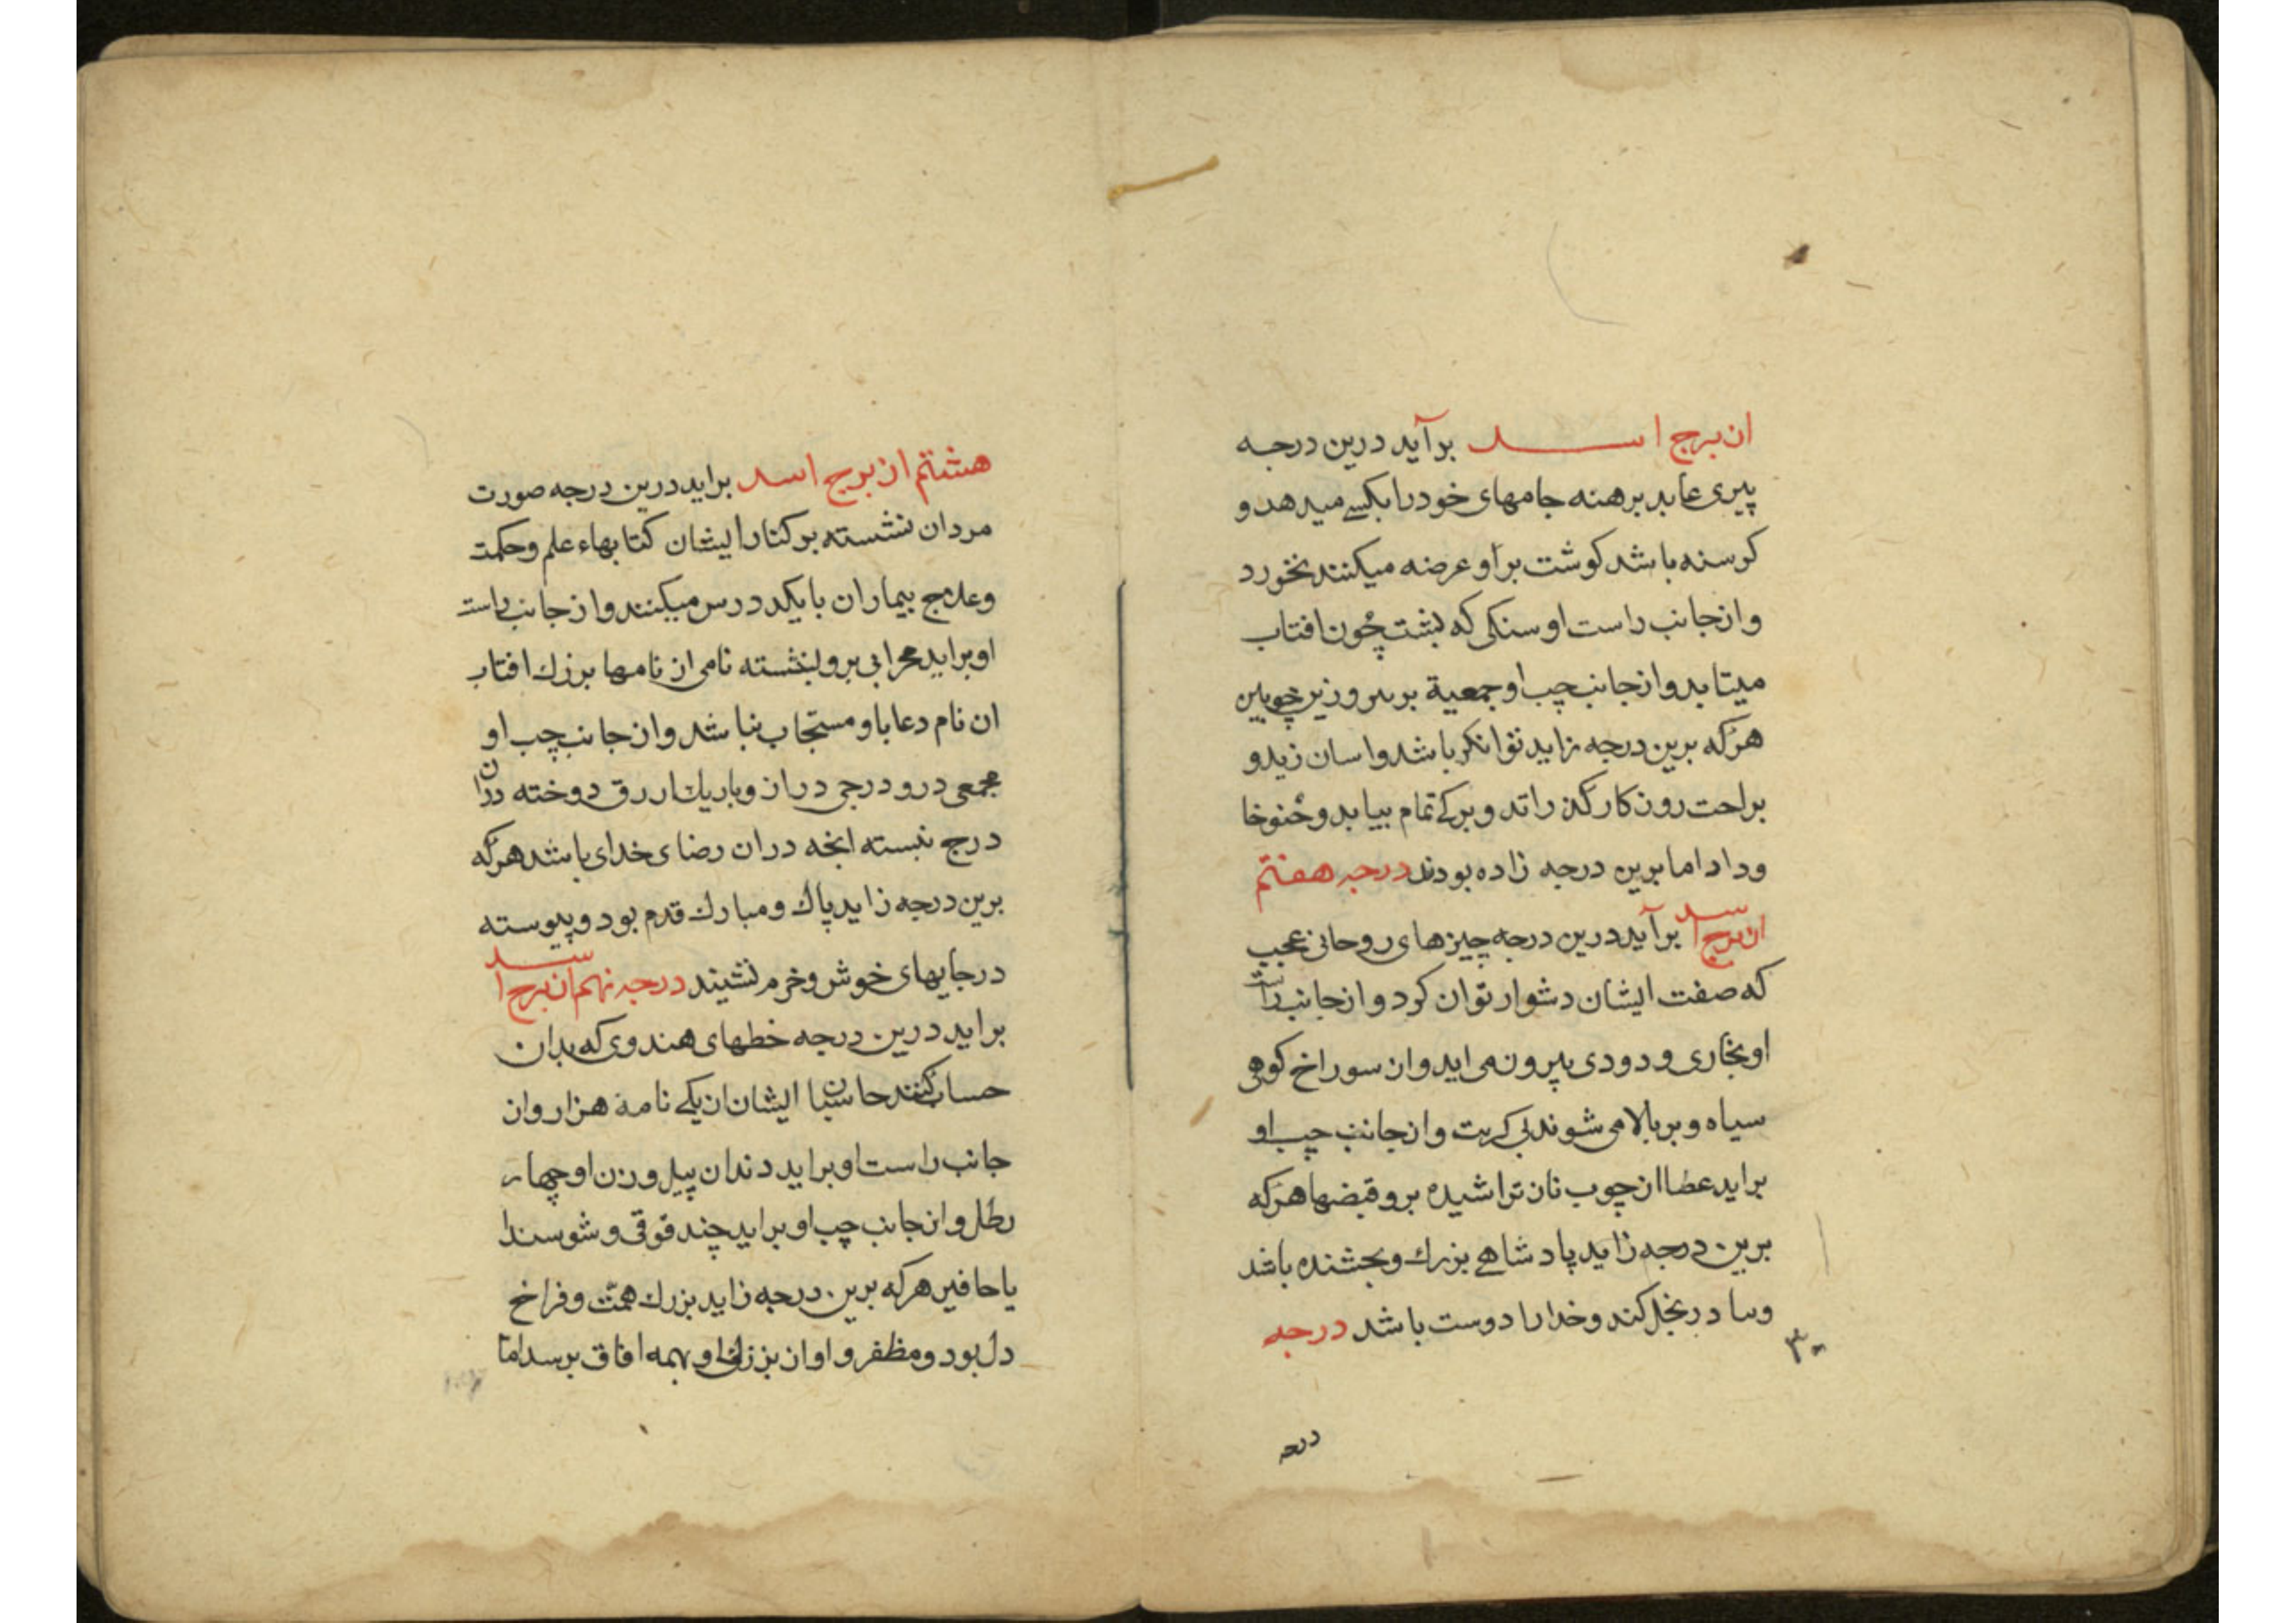 از برج اسد برآید درین درجه
پیری عابد برهنه جامهای خود را بکسے میدهد و
کرسنه باشد کوشت بر او عرضه میکنند نخورد
و از جانب راست او سنکی که بشت چون افتاب
میتابد و از جانب چب او جمعیة بر سر و زیر چوبین
هرکه برین درجه زاید توانکر باشد و اسان زید و
براحت روزکار کذراند و برکے تمام بیابد و
و داد اما برین درجه زاده بودند درجه هفتم
از برج اسد برآید درین درجه چیزهای روحانی عجیب
که صفت ایشان دشوار توان کرد و از جانب راست
او بخاری و دودی بیرون می اید و ان سوراخ کوهی
سیاه و بر بالا می شوند بی کربت و از جانب چب او
براید عطا از چوب نان تراشیده برو قبضها هرکه
برین درجه زاید پادشاهے بزرك و بخشنده باشد
و در بخل کند و خدا را دوست باشد درجه
۳۰
درجه
هشتم از برج اسد براید درین درجه صورت
مردان نشسته بر کنار ایشان کتابهاء علم و حکمت
و علاج بیماران با یکدد درس میکنند و از جانب راست
او براید محرابی برو نشسته نامی از نامها بزرك افتاب
ان نام دعا با و مستجاب بنا شد و از جانب چب او
مجمعی درو درجی دراز و باریك از رق دوخته دران
درج نبسته انچه دران رضای خدای باشد هرکه
برین درجه زاید پاك و مبارك قدم بود و پیوسته
در جایهای خوش و خرم نشیند درجه نهم از برج اسد
براید درین درجه خطهای هندوی که بدان
حساب کنند حاسبان ایشان از یکے نامة هزار و از
جانب راست او براید دندان پیل وزن او چهار
رطل و از جانب چب او براید چند قوقی و
یا حافیر هرکه برین درجه زاید بزرك همّت و فراخ
دل بود و مظفر و اواز بزرکی او بهمه افاق برسد اما